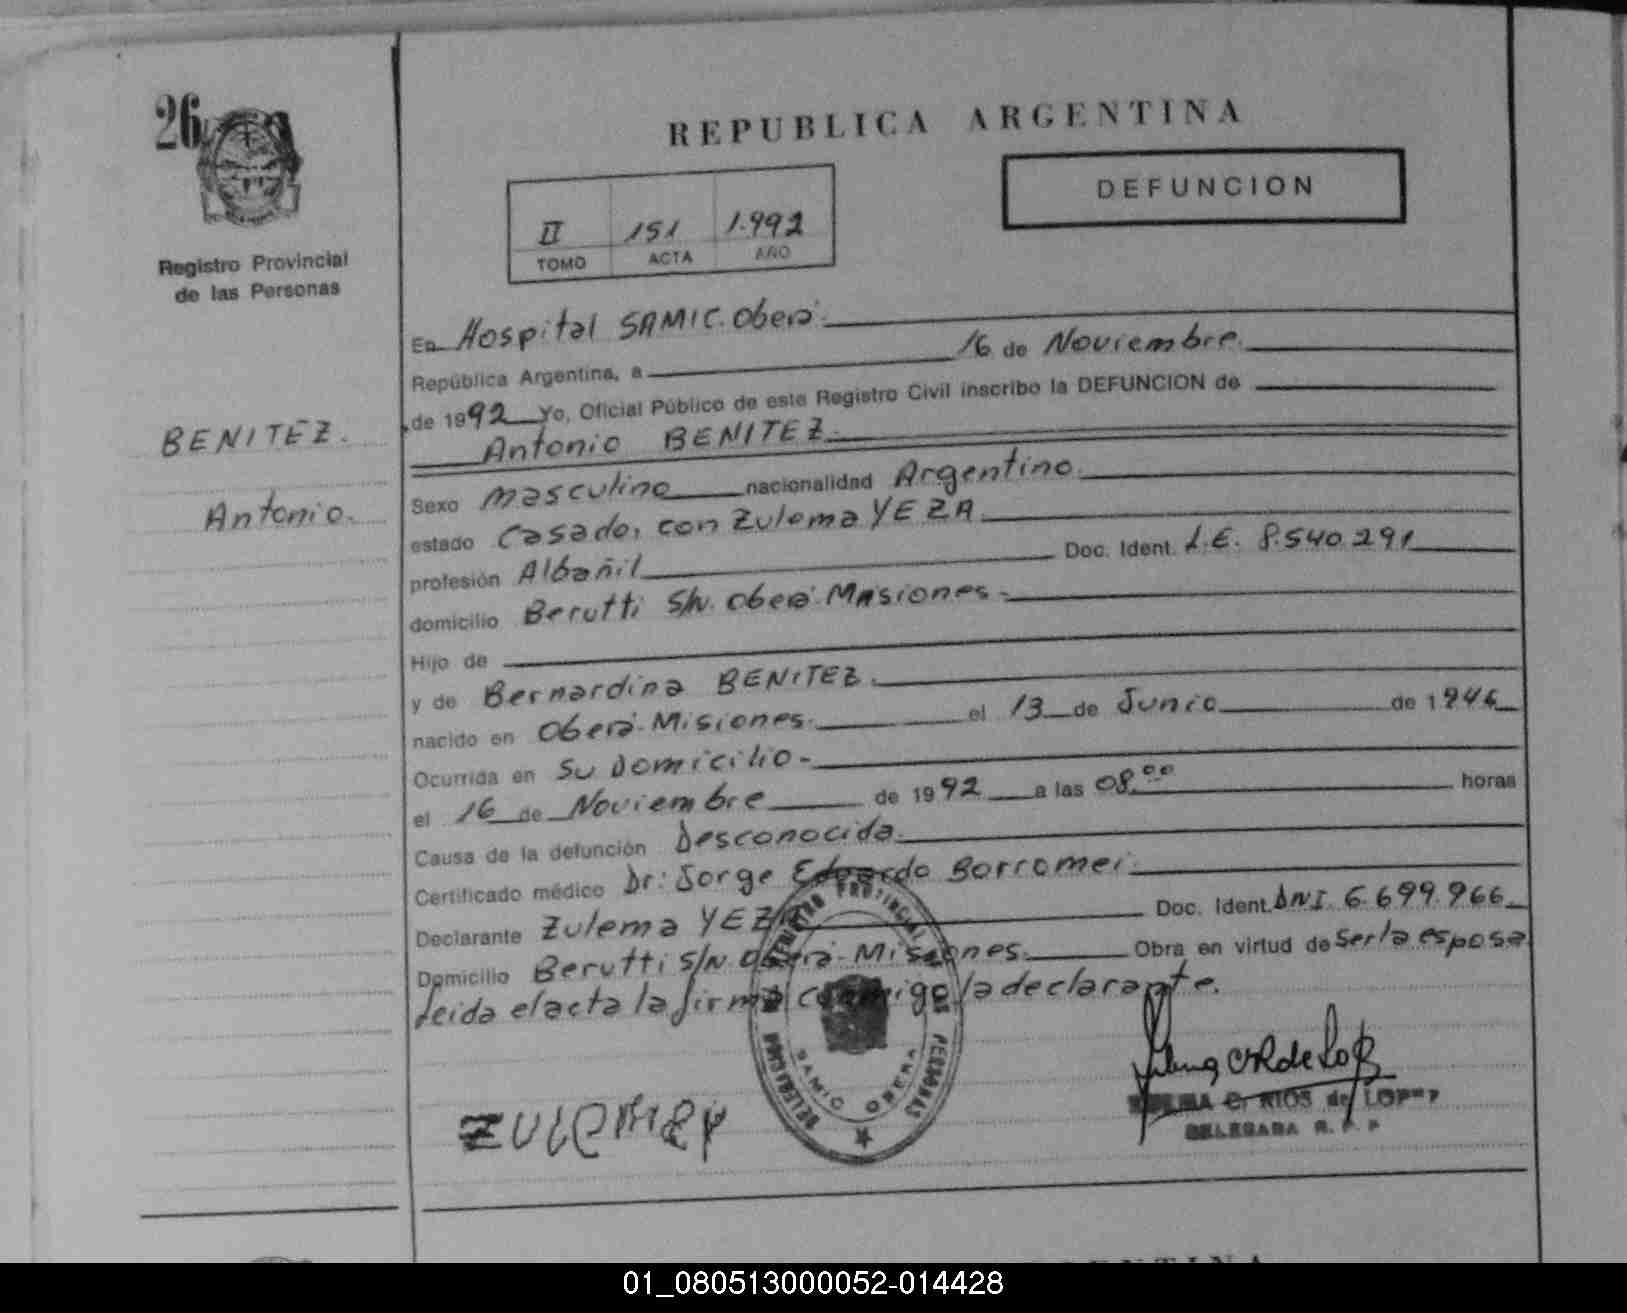 26
REPUBLICA ARGENTINA
DEFUNCION
II 151 1.992
TOMO ACTA AÑO
Registro Provincial
de las Personas
BENITEZ.
Antonio.
En Hospital SAMIC. Oberá.
República Argentina, a 16 de Noviembre.
de 1992 Yo, Oficial Público de este Registro Civil inscribo la DEFUNCION de
Antonio BENITEZ.
Sexo masculino nacionalidad Argentino.
estado Casado, con Zulema YEZA
profesión Albañil Doc. Ident. L.E. 8.540.291
domicilio Berutti S/N. Oberá. Misiones.
Hijo de
y de Bernardina BENITEZ.
nacido en Oberá. Misiones. el 13 de Junio de 1946
Ocurrida en su domicilio.
el 16 de Noviembre de 1992 a las 08.00 horas
Causa de la defunción Desconocida.
Certificado médico Dr: Jorge Eduardo Borromei.
Declarante Zulema YEZA Doc. Ident. DNI 6.699.966
Domicilio Berutti S/N. Oberá. Misiones. Obra en virtud de Ser la esposa
Leida el acta la firma conmigo la declarante.
REGISTRO PROVINCIAL DE LAS PERSONAS
DELEGACION
SAMIC OBERA
C. RIOS de LOPEZ
DELEGADA R. P. P
ARGENTINA
01_080513000052-014428